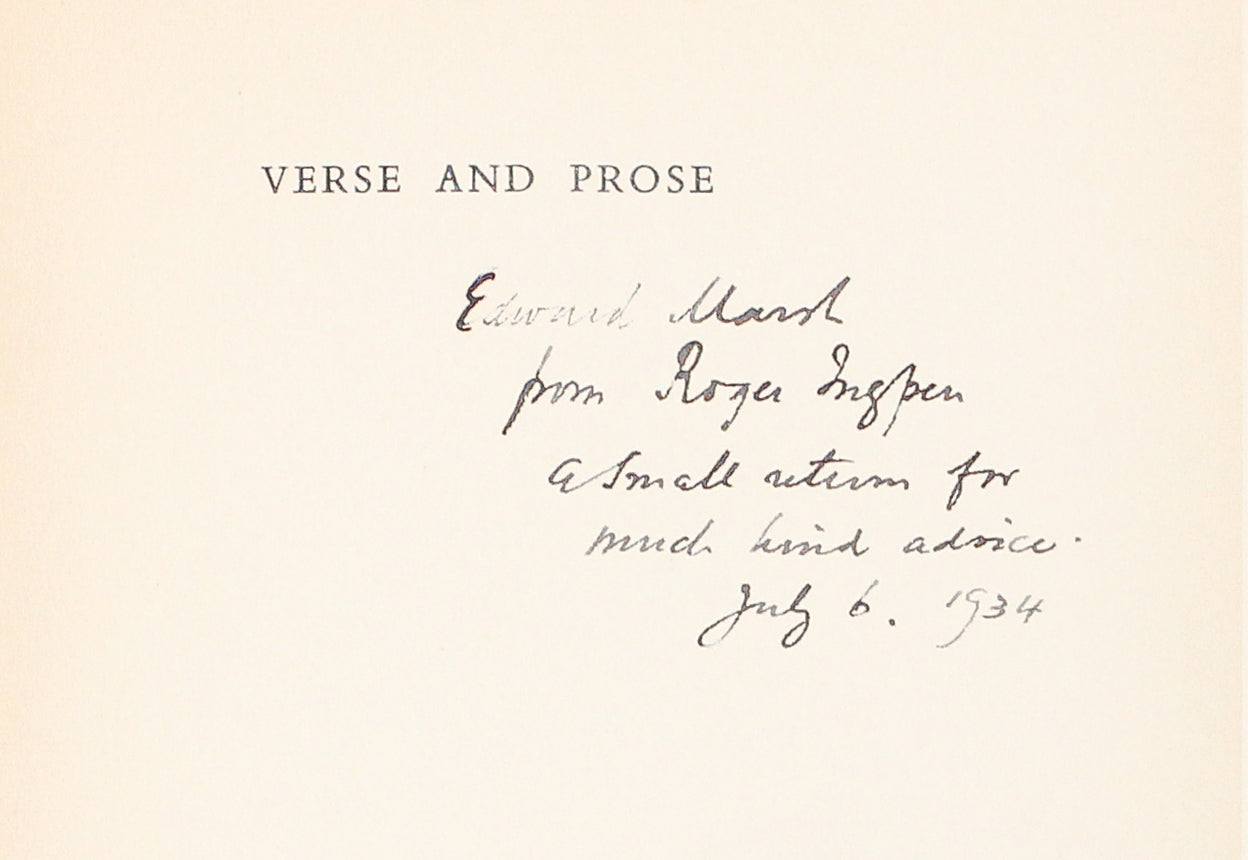 VERSE AND PROSE
Edward Marsh
from Roger Ingpen
a small return for
much kind advice.
July 6. 1934